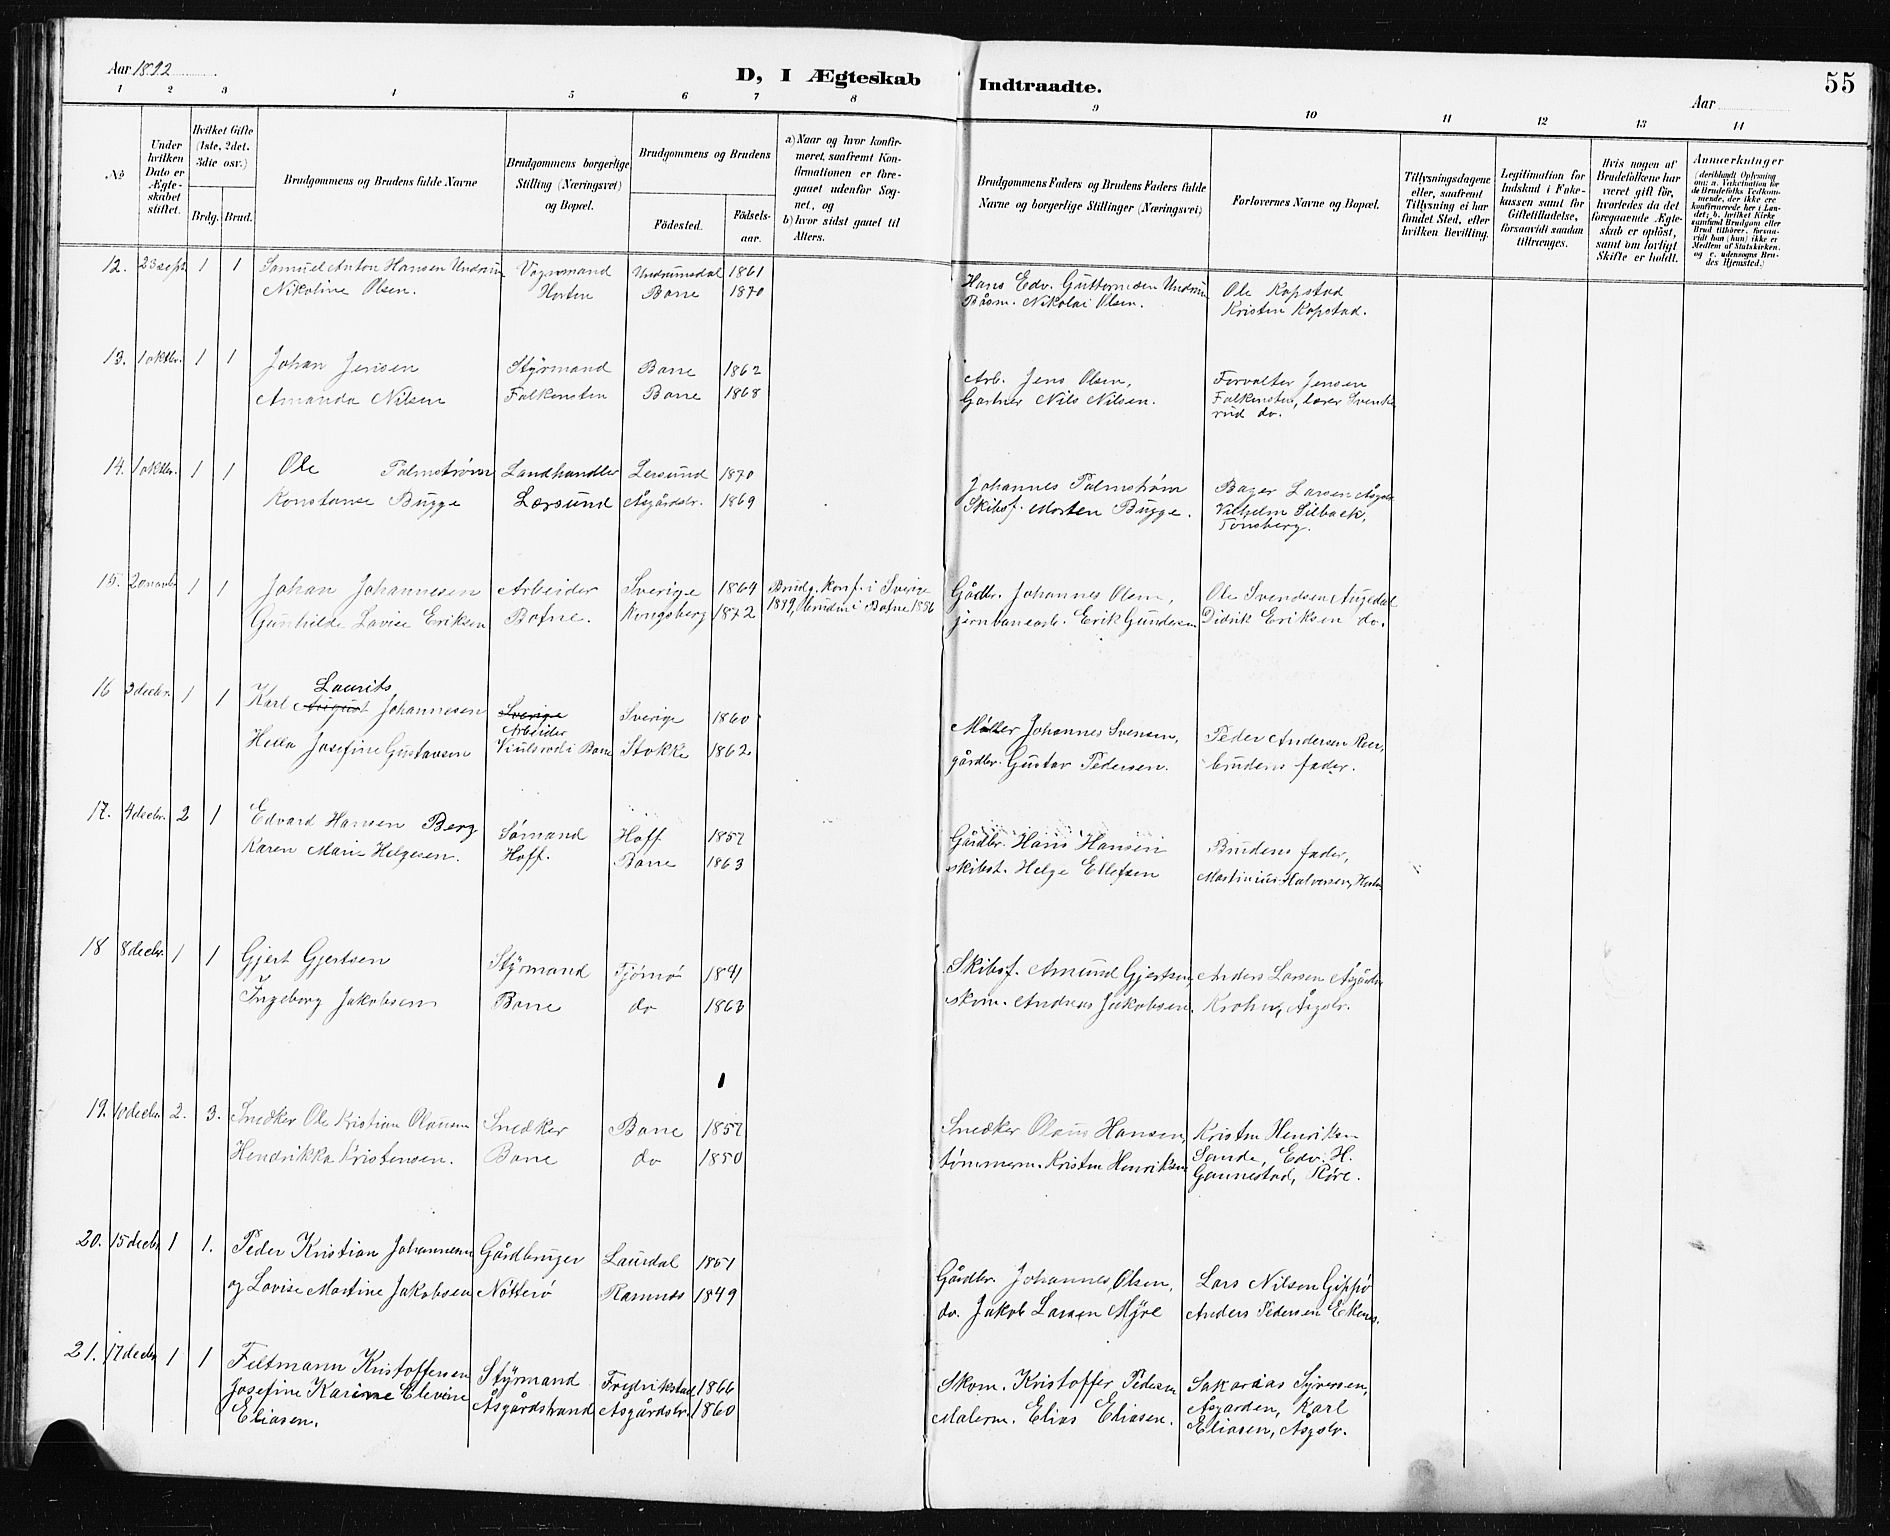 Aar 1892
D, I Ægteskab Indtraadte.
Aar
55
1 2 3 4 5 6 7 8 9 10 11 12 13 14
No
Under hvilken Dato er Ægteskabet stiftet.
Hvilket Gifte (1ste, 2det, 3die osv.)
Brdg. Brud.
Brudgommens og Brudens fulde Navne
Brudgommens borgerlige Stilling (Næringsvei) og Bopæl.
Brudgommens og Brudens
Fødested.
Fødselsaar.
a) Naar og hvor konfirmeret, saafremt Konfirmationen er foregaaet udenfor Sognet, og
b) hvor sidst gaaet til Alters.
Brudgommens Faders og Brudens Faders fulde Navne og borgerlige Stillinger (Næringsvei)
Forlovernes Navne og Bopæl.
Tillysningsdagene eller, saafremt Tillysning ei har fundet Sted, efter hvilken Bevilling.
Legitimation for Indskud i Enkekassen samt for Giftetilladelse, forsaavidt saadan tiltrænges.
Hvis nogen af Brudefolkene har været gift før, hvorledes da det foregaaende Ægteskab er opløst, samt om lovligt Skifte er holdt.
Anmærkninger
12. 23 sept. 1 1 Samuel Anton Hansen Undrum Vognmand Undrumsdal 1861 Hans Edv. Guttormsen Undrum Ole Kopstad
Nikoline Olsen. Horten Borre 1870 Båsm. Nikolai Olsen. Kristen Kopstad.
13. 1 oktbr. 1 1 Johan Jensen Styrmand Borre 1862 Arb. Jens Olsen, Forvalter Jensen
Amanda Nilsen Falkensten Borre 1868 Gartner Nils Nilsen. Falkensten, lærer Svenke
rud do.
14. 1 oktbr. 1 1 Ole Palmstrøm Landhandler Lersund 1870 Johannes Palmstrøm Bager Larsen Åsgdstr
Konstanse Bugge Lærsund Åsgårdstr. 1869 Skibsf. Morten Bugge. Vilhelm Silback,
Tønsberg.
15. 20 novbr 1 1 Johan Johannesen Arbeider Sverige 1864 Brudg. konf. i Sverige Gårdbr. Johannes Olsen, Ole Svendsen Augedal
Gunhilde Lovise Eriksen Botne. Kongsberg 1872 1879, bruden i Botne 1886 jernbanearb. Erik Gundersen Didrik Eriksen do.
16 3 decbr. 1 1 Karl August Laurits Johannesen Sverige Arbeider Sverige 1860 Møller Johannes Svensen, Peder Andersen Rør,
Hella Josefine Gustavsen Viulsrød i Borre Stokke 1862 gårdbr. Gustav Pedersen. brudens fader.
17. 4 decbr. 2 1 Edvard Hansen Berg Sømand Hoff 1857 Gårdbr. Hans Hansen Brudens fader,
Karen Marie Helgesen. Hoff. Borre 1863 skibst. Helge Ellefsen Martinius Halvorsen, Horten
18 8 decbr. 1 1 Gjert Gjertsen Styrmand Tjømø 1841 Skibsf. Amund Gjertsen, Anders Larsen Åsgårdstr
Ingeborg Jakobsen Borre do 1863 skom. Andreas Jakobsen. Krohn, Åsgstr.
1
19. 10 decbr. 2. 3. Snedker Ole Kristian Olausen Snedker Borre 1857 Snedker Olaus Hansen, Kristen Henriksen
Hendrikka Kristensen. Borre do 1850 tømmerm. Kristen Henriksen Sande, Edv. H.
Gannestad, Røre.
20. 15 decbr. 1 1. Peder Kristian Johannesen Gårdbruger Laurdal 1851 Gårdbr. Johannes Olsen, Lars Nilsen Gippø
og Lovise Martine Jakobsen Nøtterø Ramnes 1849 do. Jakob Larsen Myre Anders Pedersen Ekens.
21. 17 decbr 1 1 Feltmann Kristoffersen Styrmand Fredrikstad 1866 Skom. Kristoffer Pedersen Sakarias Syversen,
Josefine Karine Elevine Åsgårdstrand Åsgårdstr. 1860 Malerm. Elias Eliasen. Åsgården, Karl
Eliasen. Eliasen, Åsgstr.